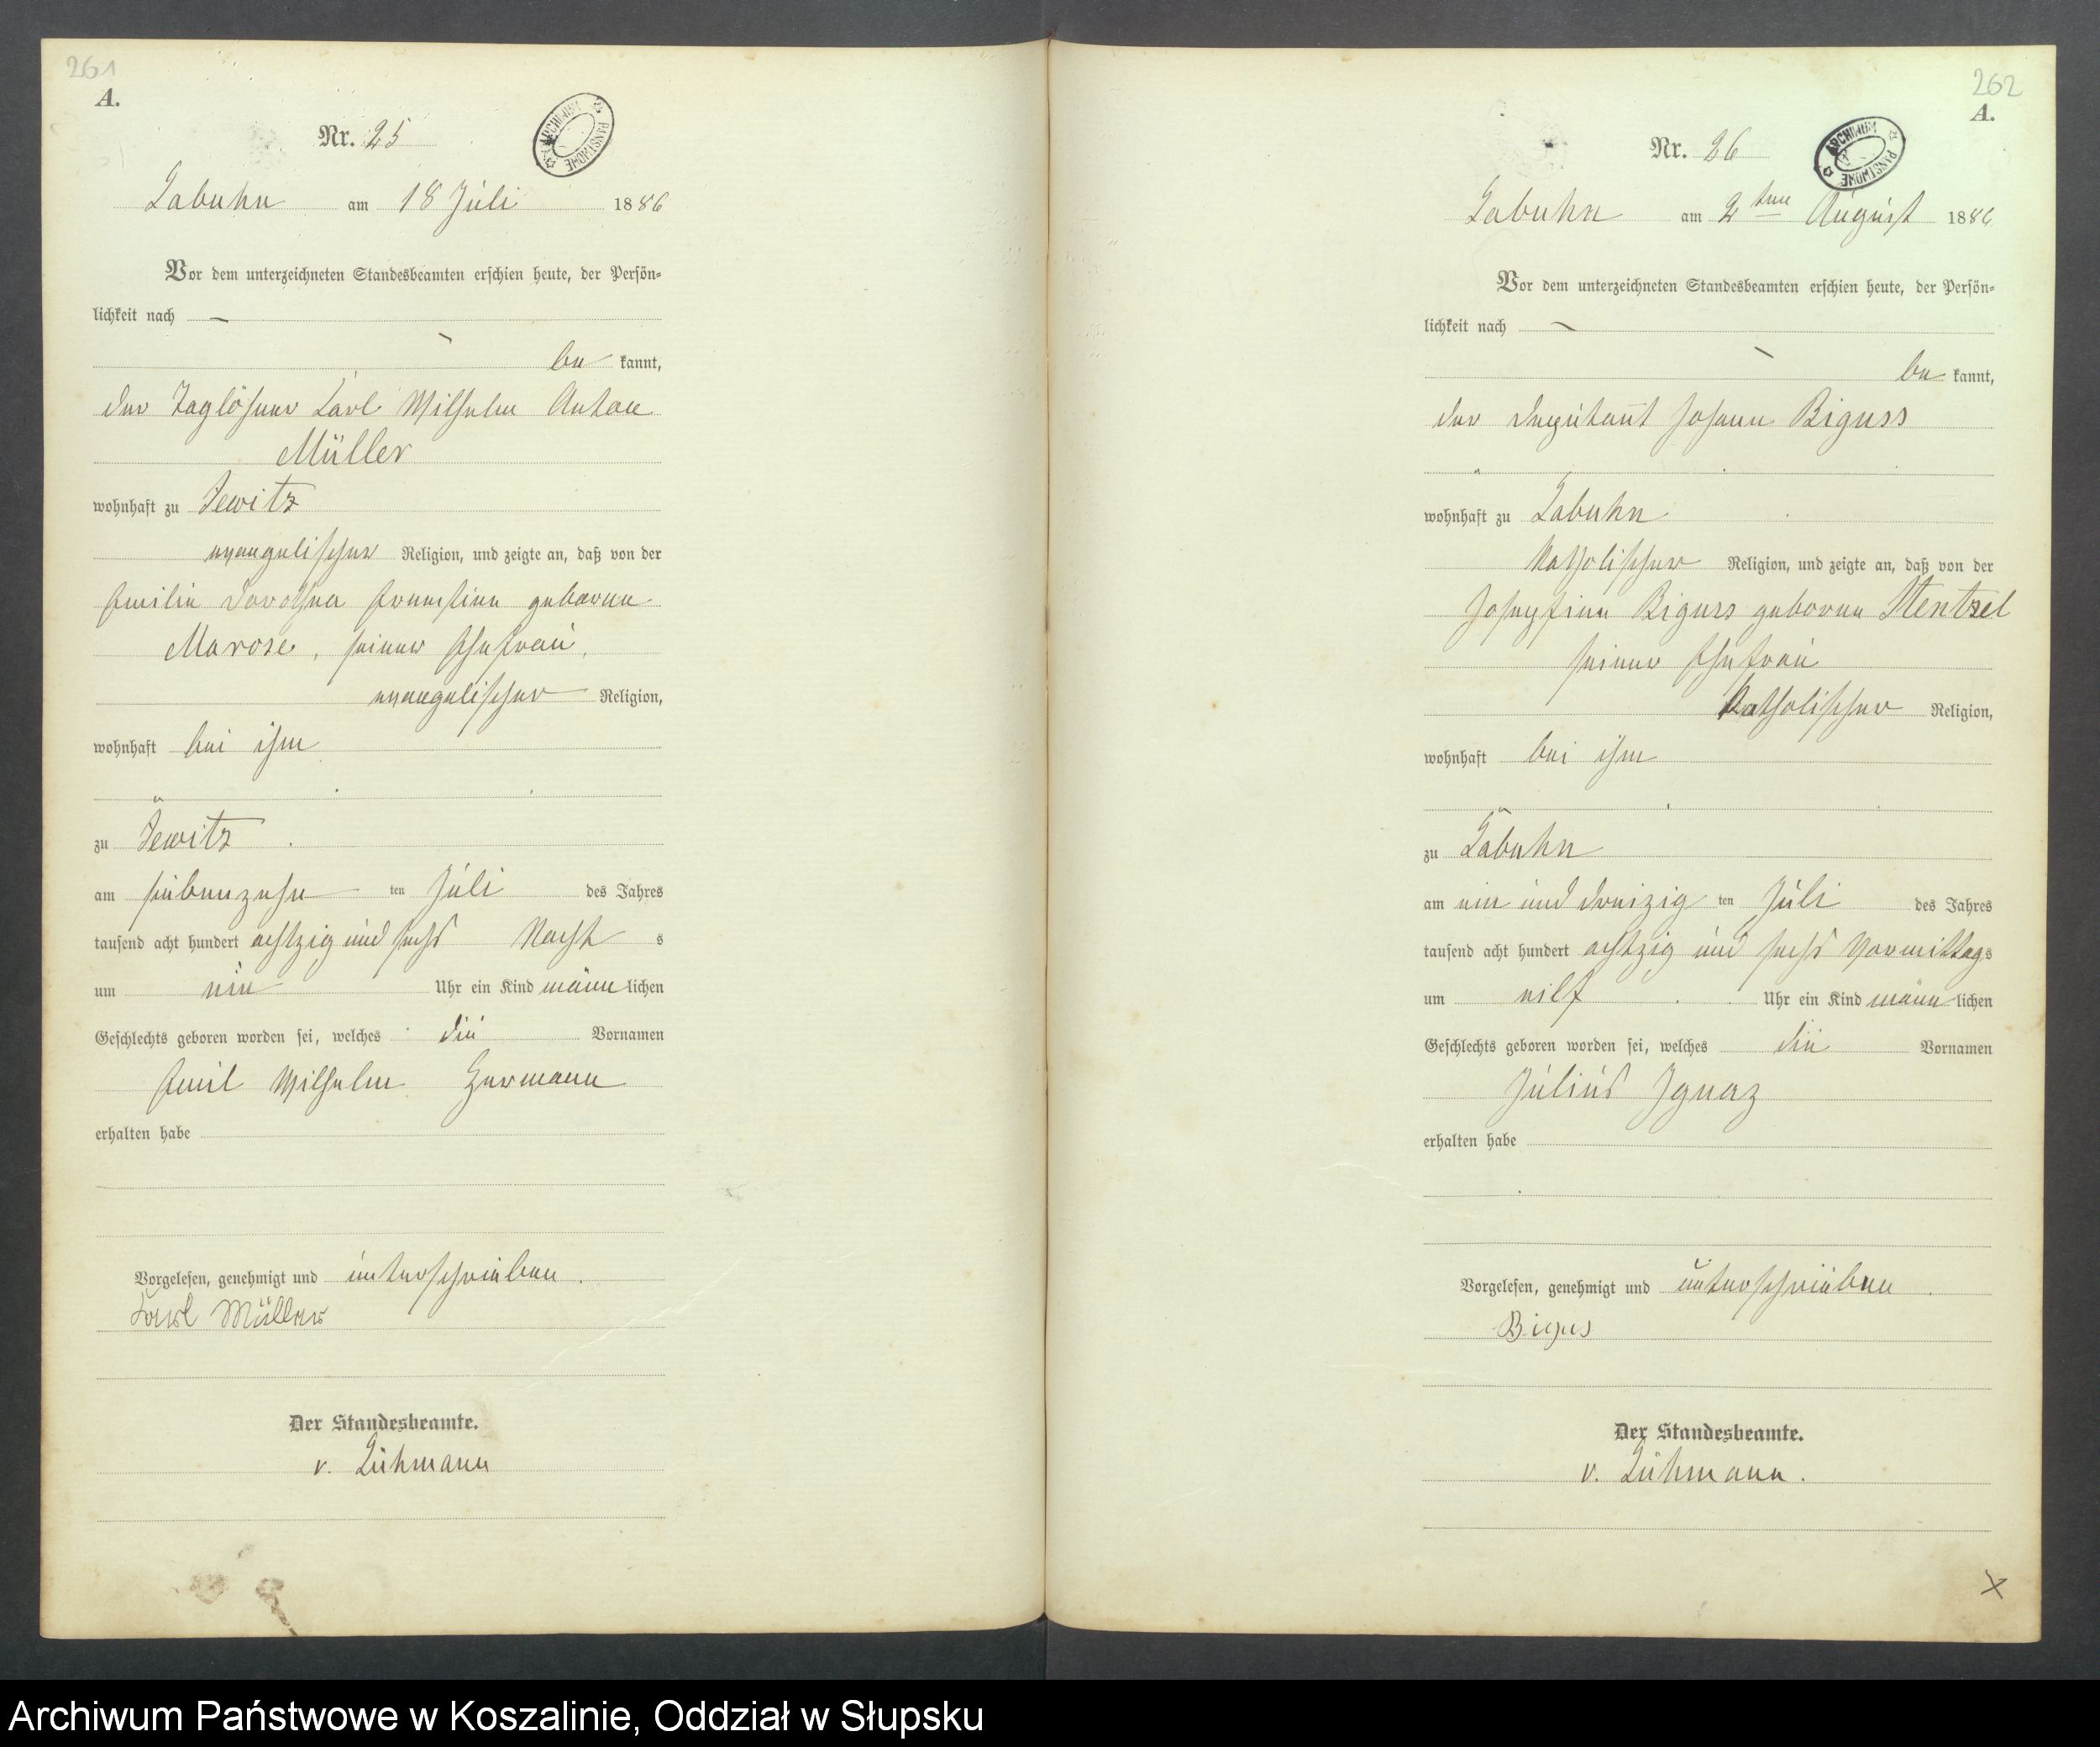 261
A.
Nr. 25
ARCHIWUM PAŃSTWOWE
Labuhn am 18 Juli 1886
Vor dem unterzeichneten Standesbeamten erschien heute, der Persön-
lichkeit nach —
be kannt,
der Taglöhner Carl Wilhelm Anton
Müller
wohnhaft zu Jewitz
evangelischer Religion, und zeigte an, daß von der
Emilie Dorothea Ernestine geborene
Marose, seiner Ehefrau,
evangelischer Religion,
wohnhaft bei ihm
zu Jewitz
am siebenzehn ten Juli des Jahres
tausend acht hundert achtzig und sechs Nacht s
um ein Uhr ein Kind männ lichen
Geschlechts geboren worden sei, welches die Vornamen
Emil Wilhelm Hermann
erhalten habe
Vorgelesen, genehmigt und unterschrieben.
Karl Müller
Der Standesbeamte.
v. Lühmann
262
A.
Nr. 26
ARCHIWUM PAŃSTWOWE
Labuhn am 2ten August 1886
Vor dem unterzeichneten Standesbeamten erschien heute, der Persön-
lichkeit nach —
be kannt,
der Deputant Johann Biguss
wohnhaft zu Labuhn
Katholischer Religion, und zeigte an, daß von der
Josephine Biguss geborene Stentzel
seiner Ehefrau
Katholischer Religion,
wohnhaft bei ihm
zu Labuhn
am ein und dreizig ten Juli des Jahres
tausend acht hundert achtzig und sechs Vormittags
um eilf Uhr ein Kind männ lichen
Geschlechts geboren worden sei, welches die Vornamen
Julius Ignaz
erhalten habe
Vorgelesen, genehmigt und unterschrieben.
Bigus
Der Standesbeamte.
v. Lühmann.
Archiwum Państwowe w Koszalinie, Oddział w Słupsku